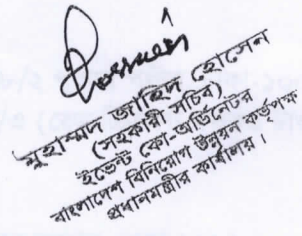 মুহাম্মদ জাহিদ হোসেন
(সহকারী সচিব)
ইভেন্ট কো-অর্ডিনেটর
বাংলাদেশ বিনিয়োগ উন্নয়ন কর্তৃপক্ষ
প্রধানমন্ত্রীর কার্যালয়।